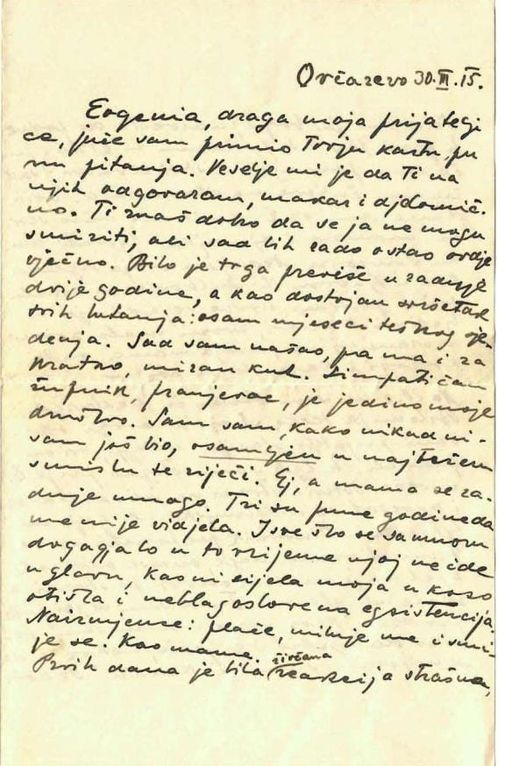 Ovčarevo 30.III.15.
Evgenia, draga moja prijatelji
ce, juče sam primio Tvoju kartu, pu
nu pitanja. Veselje mi je da Ti na
njih odgovaram, makar i djelomič
no. Ti znaš dobro da se ja ne mogu
smiriti, ali sad bih rado ostao ovdje
vječno. Bilo je trga previše u zadnje
dvije godine, a kao dostojan svršetak
svih lutanja: osam mjeseci teškog sje
denja. Sad sam našao, pa ma i za
kratko, miran kut. Simpatičan
župnik, franjevac, je jedino moje
društvo. Sam sam, kako nikad ni-
sam još bio, osamljen u najtežem
smislu te riječi. Ej, a mama se za-
duje mnogo. Tri su pune godine da
me nije vidjela. I sve što se sa mnom
dogagjalo u to vrijeme njoj ne ide
u glavu, kao ni cijela moja u koso
otišla i neblagoslovena egsistencija.
Naizmjence: plače, miluje me i smi-
je se. Kao mame.
Prvih dana je bila živčana reakcija strašna,